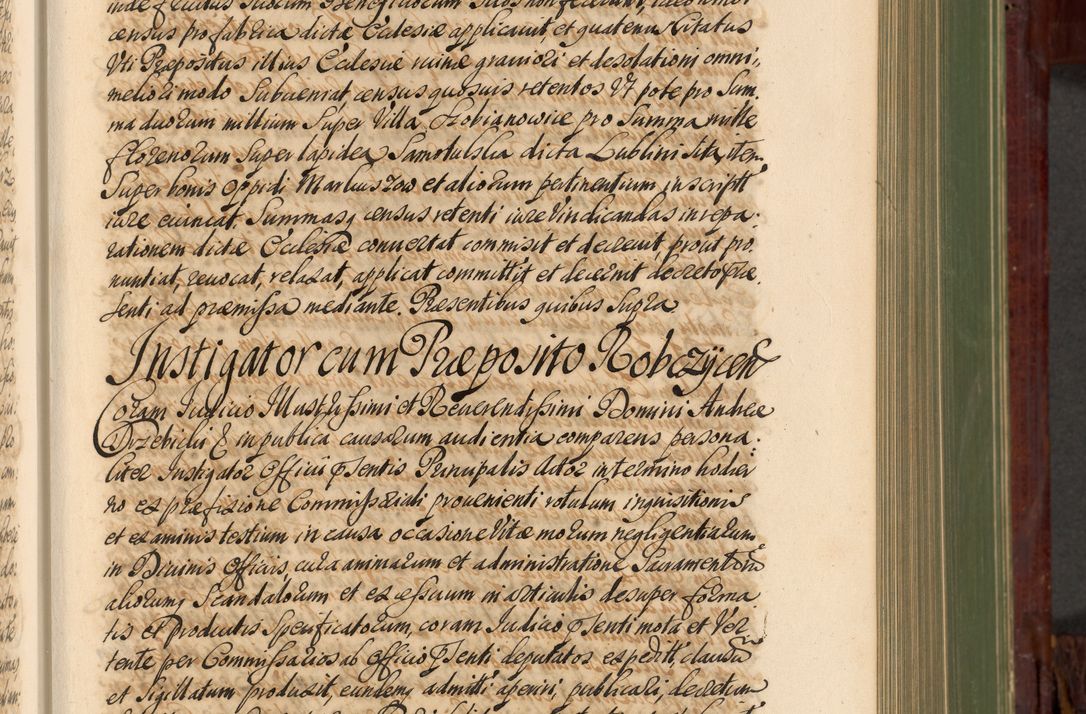 census pro fabrica dictæ Ecclesiæ applicavit, et quatenus Citatus
Vti Præpositus illius Ecclesiæ ruinæ graviori et desolationi omni,,
meliori modo Subveniat, census quosvis retentos Vt pote pro Sum,
ma duorum millium Super Villa Łobianowice pro Summa mille
florenorum Super lapidea Samotulska dicta Lublini Sita, item
Super bonis oppidi Markuszow et aliorum pertinentium inscript
iure evincat, Summasq census retenti iure Vindicandas in repa,
rationem dictæ Ecclesiæ convertat commisit et decrevit, prout pro,
nuntiat, revocat, relaxat, applicat committit et decernit decreto præ,
senti ad præmissa mediante. Præsentibus quibus Supra
Instigator cum Præposito Robczÿcen
Coram Iudicio Illustrissimi et Reverendissimi Domini Andreæ
Trzebicki & in publica causarum audientia comparens persona,
liter Instigator Officii pñsentis Principalis Actor in termino hodier
no ex præfixione Commissariali provenienti rotulum inquisitionis
et examinis testium in causa occasione Vitæ morum negligentiarum
in Divinis Officiis, cura animarum et administratione Sacramentorũ
aliorumq Scandalorum et excessuum in articulis desuper forma,
tis et productis Specificatorum, coram Iudicio pñsenti mota et Ver
tente per Commissarios ab officio pñsenti deputatos expedit, clausũ
et Sigillatum produxit, eundemq admitti aperiri, publicari, decretum